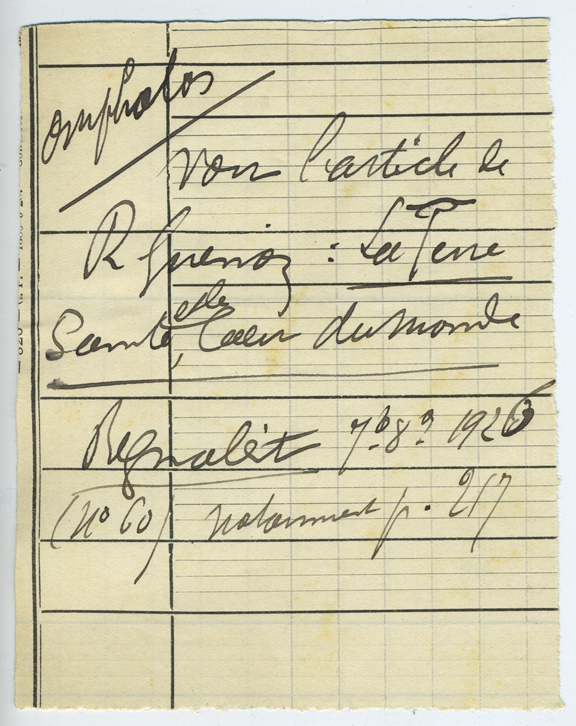 omphalos
voir l'article de
R Guénon : La Terre
Sainte, et le Cœur du Monde
Regnabit 7b. 8e 1926
(No 60) notamment p. 217